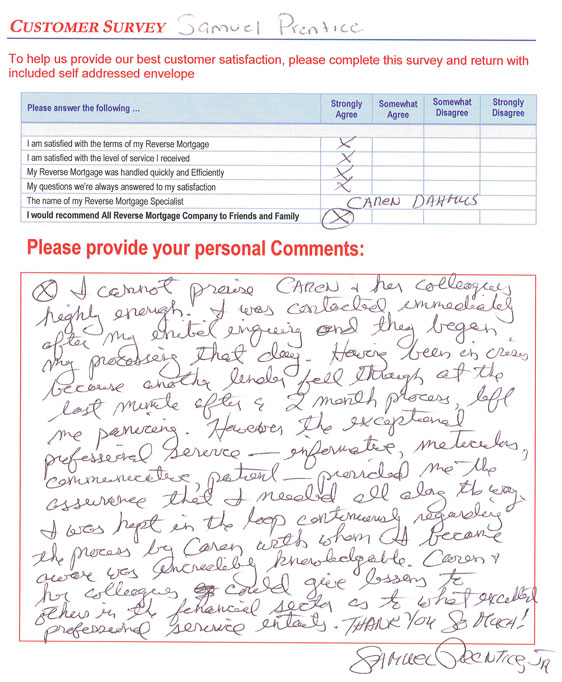 CUSTOMER SURVEY Samuel Prentice
To help us provide our best customer satisfaction, please complete this survey and return with
included self addressed envelope
Please answer the following ... Strongly Agree Somewhat Agree Somewhat Disagree Strongly Disagree
I am satisfied with the terms of my Reverse Mortgage X
I am satisfied with the level of service I received X
My Reverse Mortgage was handled quickly and Efficiently X
My questions we're always answered to my satisfaction X
The name of my Reverse Mortgage Specialist CAREN DAHMUS
I would recommend All Reverse Mortgage Company to Friends and Family X
Please provide your personal Comments:
X I cannot praise CAREN & her colleagues
highly enough. I was contacted immediately
after my initial enquiry and they began
my processing that day. Having been in crisis
because another lender fell through at the
last minute after a 2 month process, left
me panicing. However the exceptional
professional service — informative, meticulous,
communicative, patient — provided me the
assurance that I needed all along the way.
I was kept in the loop continuously regarding
the process by Caren with whom I became
aware was incredibly knowledgable. Caren &
her colleagues could give lessons to
others in the financial sector as to what excelled
professional service entails. THANK YOU SO MUCH!
SAMUEL PRENTICE, JR